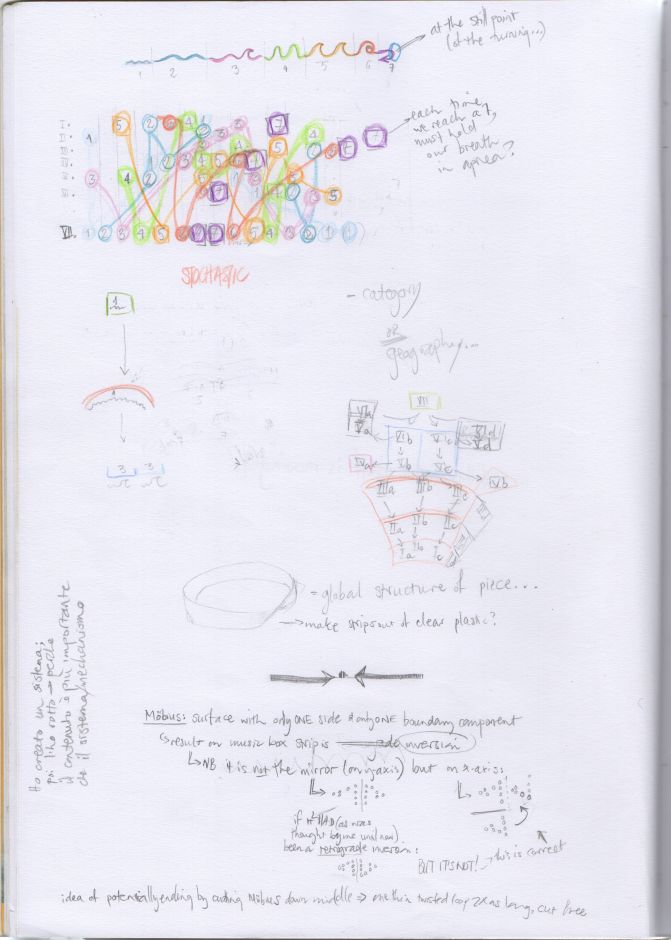 at the still point
(of the turning...)
1 2 3 4 5 6 7
each time
we reach a 7,
must hold
our breath
in apnea?
VII.
STOCHASTIC
- category
OR
geography...
VII
VIb VIc
Va Vb Vc Vd
IVa IVb
IIIa IIIb IIIc
IIa IIb IIc
Ia Ib Ic
3 3
= global structure of piece...
→ make strips out of clear plastic?
Ho creato un sistema;
poi l'ho rotto → perché
il contenuto è più importante
che il sistema/mechanismo
Möbius: surface with only ONE side & only ONE boundary component
↳ result on music box strip is inversion
↳ NB it is not the mirror (on y-axis) but on x-axis:
if it HAD (as was
thought by me until now)
been a retrograde inversion:
BUT IT'S NOT! → this is correct
idea of potentially ending by cutting Möbius down middle → one thin twisted loop 2x as long, cut free